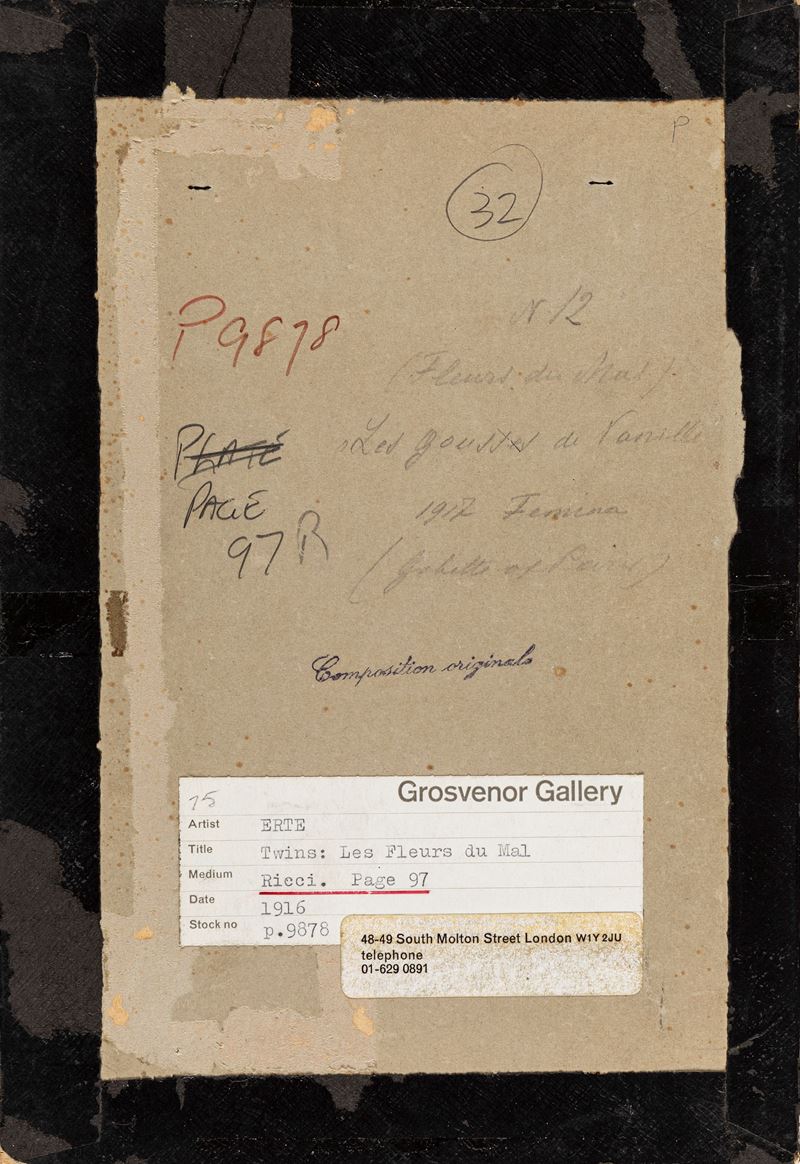 P
32
P9878
N 12
(Fleurs du Mal)
PLATE
Les gousses de Vanille
PAGE
1917 Femina
97 R
Composition originale
75
Grosvenor Gallery
Artist ERTE
Title Twins: Les Fleurs du Mal
Medium Ricci. Page 97
Date 1916
Stock no p.9878
48-49 South Molton Street London W1Y 2JU
telephone
01-629 0891